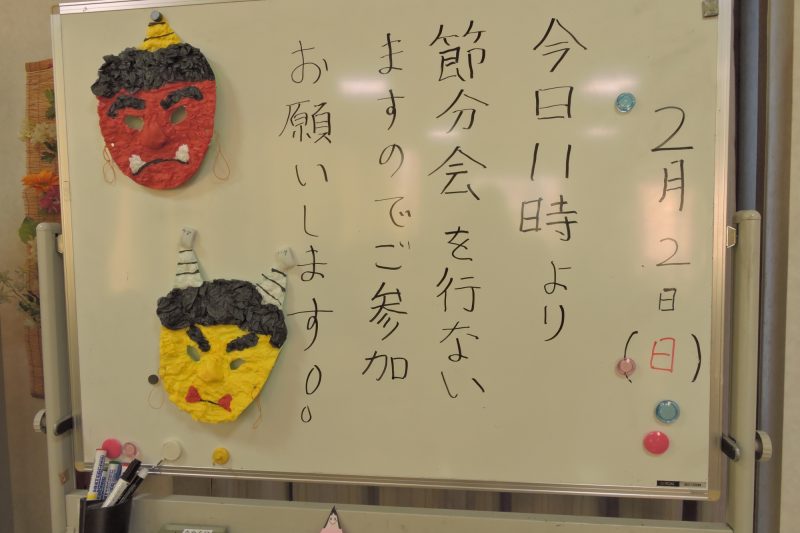 2月2日(日)
今日11時より
節分会を行ない
ますのでご参加
お願いします。